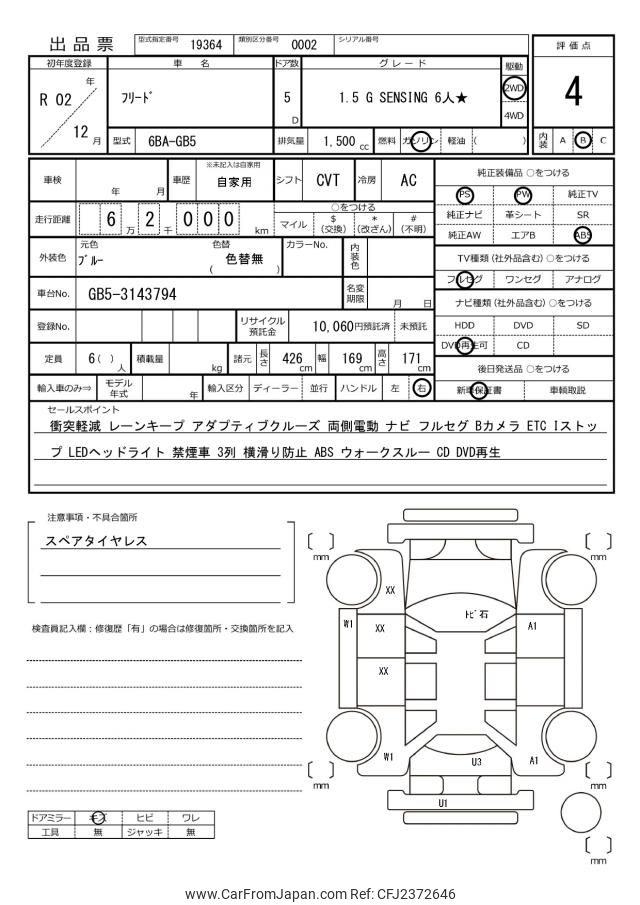 出品票 型式指定番号 19364 類別区分番号 0002 シリアル番号
評価点
4
初年度登録 車名 ドア数 グレード 駆動
R 02 年 ﾌﾘｰﾄﾞ 5 D 1.5 G SENSING 6人★ 2WD
12 月 4WD
型式 6BA-GB5 排気量 1,500 cc 燃料 ガソリン 軽油 ( )
内装 A B C
車検 年 月 車歴 ※未記入は自家用 自家用 シフト CVT 冷房 AC
純正装備品 ○をつける
PS PW 純正TV
純正ナビ 革シート SR
純正AW エアB ABS
走行距離 6 万 2 千 0 0 0 km
○をつける
マイル $(交換) *(改ざん) #(不明)
外装色 元色 ﾌﾞﾙｰ 色替 ( 色替無 ) カラーNo. 内装色
TV種類 (社外品含む) ○をつける
フルセグ ワンセグ アナログ
車台No. GB5-3143794 名変期限 月 日
ナビ種類 (社外品含む) ○をつける
HDD DVD SD
DVD再生可 CD
登録No. リサイクル預託金 10,060円預託済 未預託
定員 6( ) 人 積載量 kg 諸元 長さ 426 cm 幅 169 cm 高さ 171 cm
後日発送品 ○をつける
新車保証書 車輌取説
輸入車のみ⇒ モデル年式 年 輸入区分 ディーラー 並行 ハンドル 左 右
セールスポイント
衝突軽減 レーンキープ アダプティブクルーズ 両側電動 ナビ フルセグ Bカメラ ETC Iストッ
プ LEDヘッドライト 禁煙車 3列 横滑り防止 ABS ウォークスルー CD DVD再生
注意事項・不具合箇所
スペアタイヤレス
検査員記入欄：修復歴「有」の場合は修復箇所・交換箇所を記入
mm mm
XX
ﾄﾋﾞ石
W1 XX A1
XX
W1 U3 A1
mm mm
U1
mm
ドアミラー キズ ヒビ ワレ
工具 無 ジャッキ 無
www.CarFromJapan.com Ref: CFJ2372646